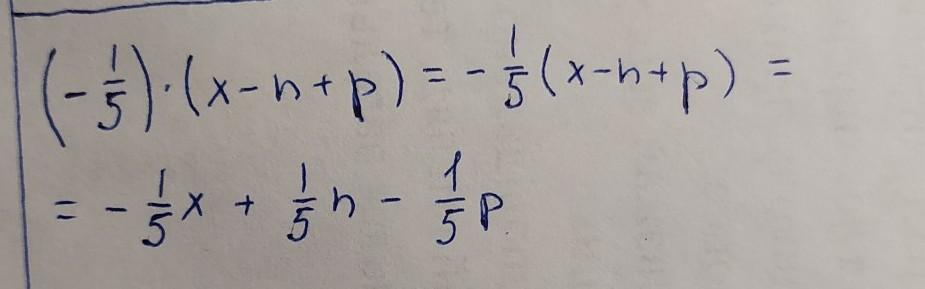 (-1/5)·(x-n+p) = -1/5(x-n+p) =
= -1/5x + 1/5n - 1/5p